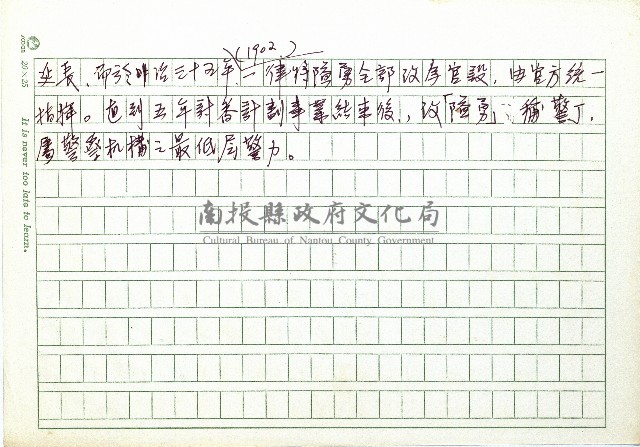 (1902)
延長,而於明治三十五年一律將隘勇全部改為官設,由官方統一
指揮。直到五年計畫計劃事業結束後,改「隘勇」稱警丁,
屬警察机構之最低层警力。
南投縣政府文化局
Cultural Bureau of Nantou County Government
20×25
It is never too late to learn.